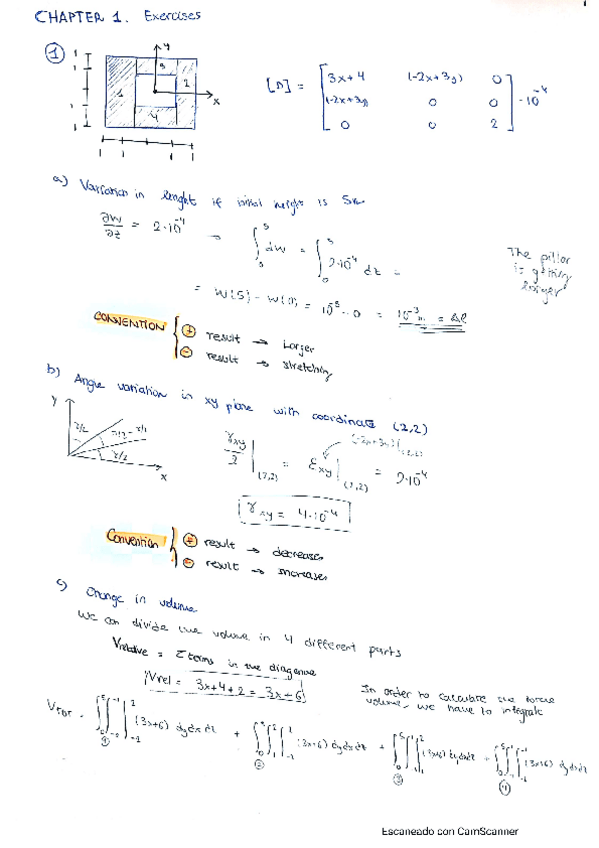 CHAPTER 1. Exercises
1
y
x
1 2 3 4
[D] = [ 3x+4 (-2x+3y) 0
(-2x+3y) 0 0
0 0 2 ] · 10⁻⁴
a) Variation in lenght if initial height is 5m
∂w/∂z = 2·10⁻⁴ → ∫ dw = ∫₀⁵ 2·10⁻⁴ dz =
= W(5) - W(0) = 10⁻³ - 0 = 10⁻³ m = Δl
The pillar
is getting
longer
CONVENTION
+ result → Larger
- result → stretching
b) Angle variation in xy plane with coordinate (2,2)
y
x
γxy/2 |(2,2) = εxy |(2,2) = 2·10⁻⁴
(-2x+3y)|(2,2)
γxy = 4·10⁻⁴
Convention
+ result → decreases
- result → increases
c) Change in volume
We can divide the volume in 4 different parts
Vrelative = Σ terms in the diagonal
Vrel = 3x+4+2 = 3x+6
In order to calculate the total
volume, we have to integrate
VTOT = ∫∫∫ (3x+6) dy dx dz + ∫∫∫ (3x+6) dy dx dz + ∫∫∫ (3x+6) dy dx dz + ∫∫∫ (3x+6) dy dx dz
1 2 3 4
Escaneado con CamScanner